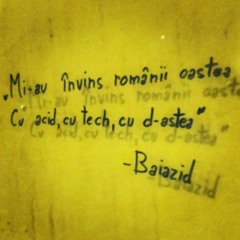 „Mi-au învins românii oastea,
Cu acid, cu tech, cu d-astea”
-Baiazid